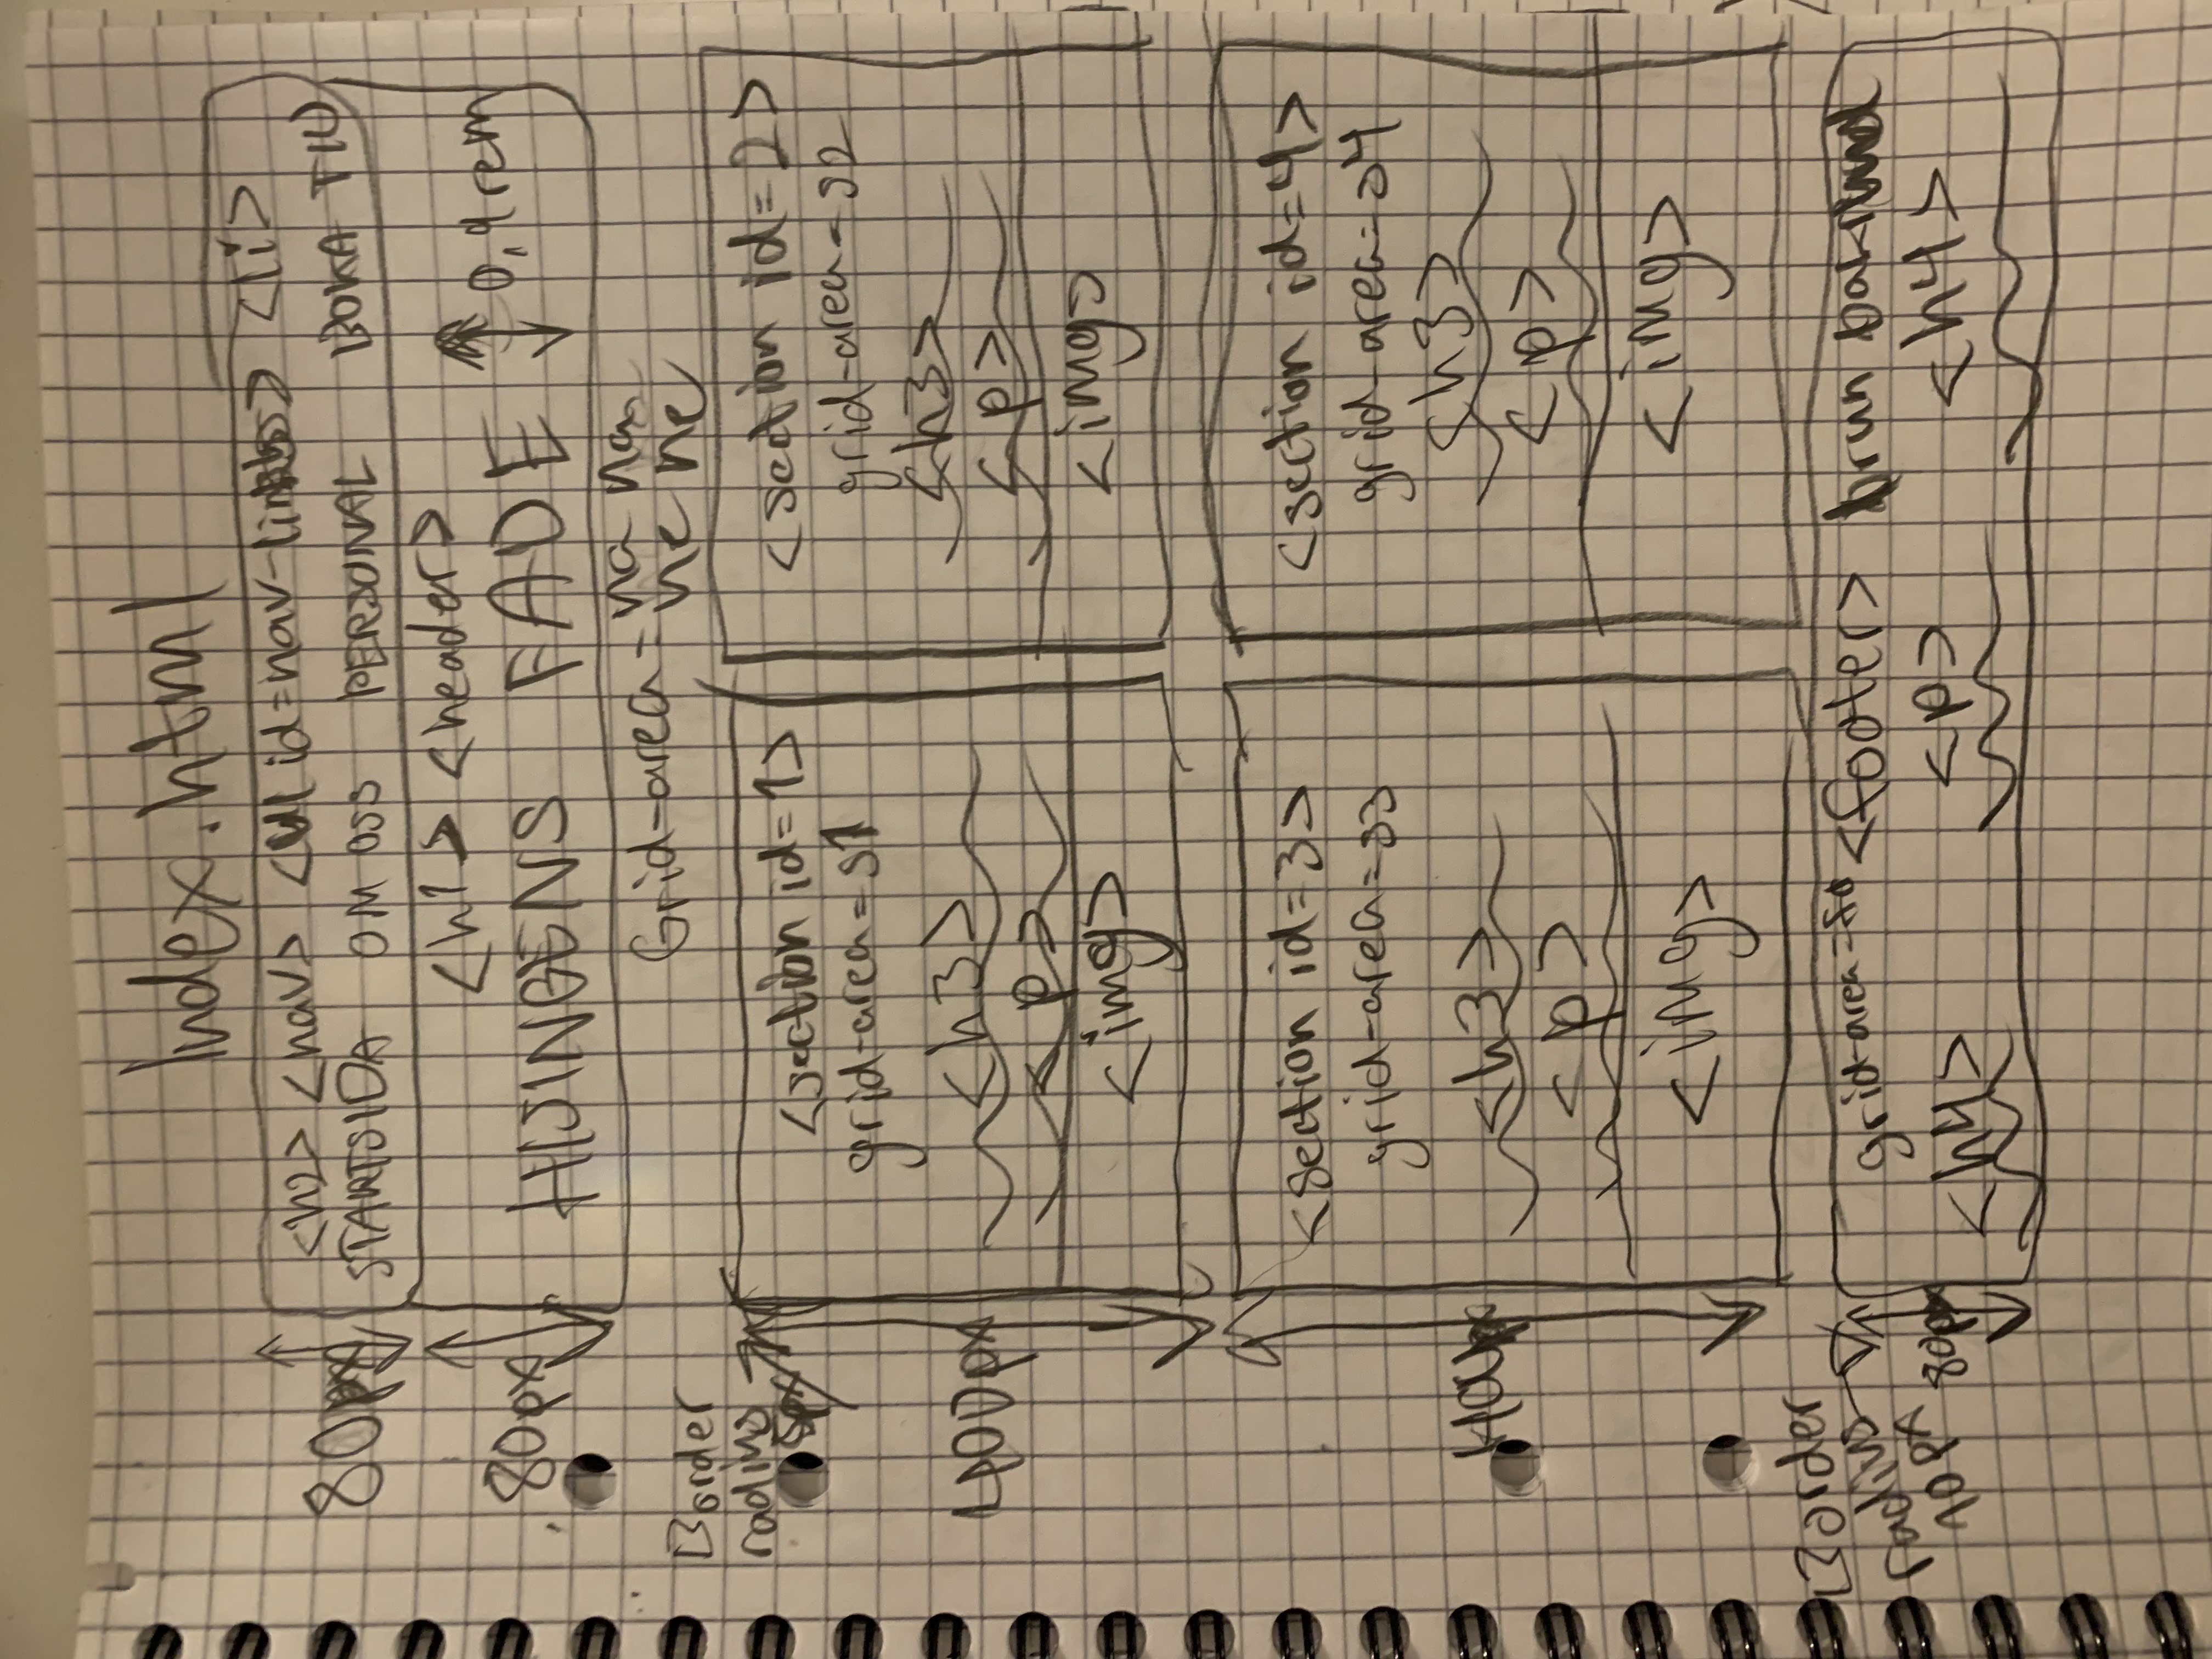 Index.html
80px
<h2> <nav> <ul id=nav-links> <li>
STARTSIDA OM OSS PERSONAL BOKA TID
80px
<h1> <header>
HIJINGENS FADE
0,9rem
Grid-area = na na
he he
Border
radius
5px
400px
<section id=1>
grid-area=s1
<h3>
<p>
<img>
<section id=2>
grid-area=s2
<h3>
<p>
<img>
400px
<section id=3>
grid-area=s3
<h3>
<p>
<img>
<section id=4>
grid-area=s4
<h3>
<p>
<img>
Border
radius
10px
80px
grid-area=fo <footer> brun
<h4> <p> <h4>